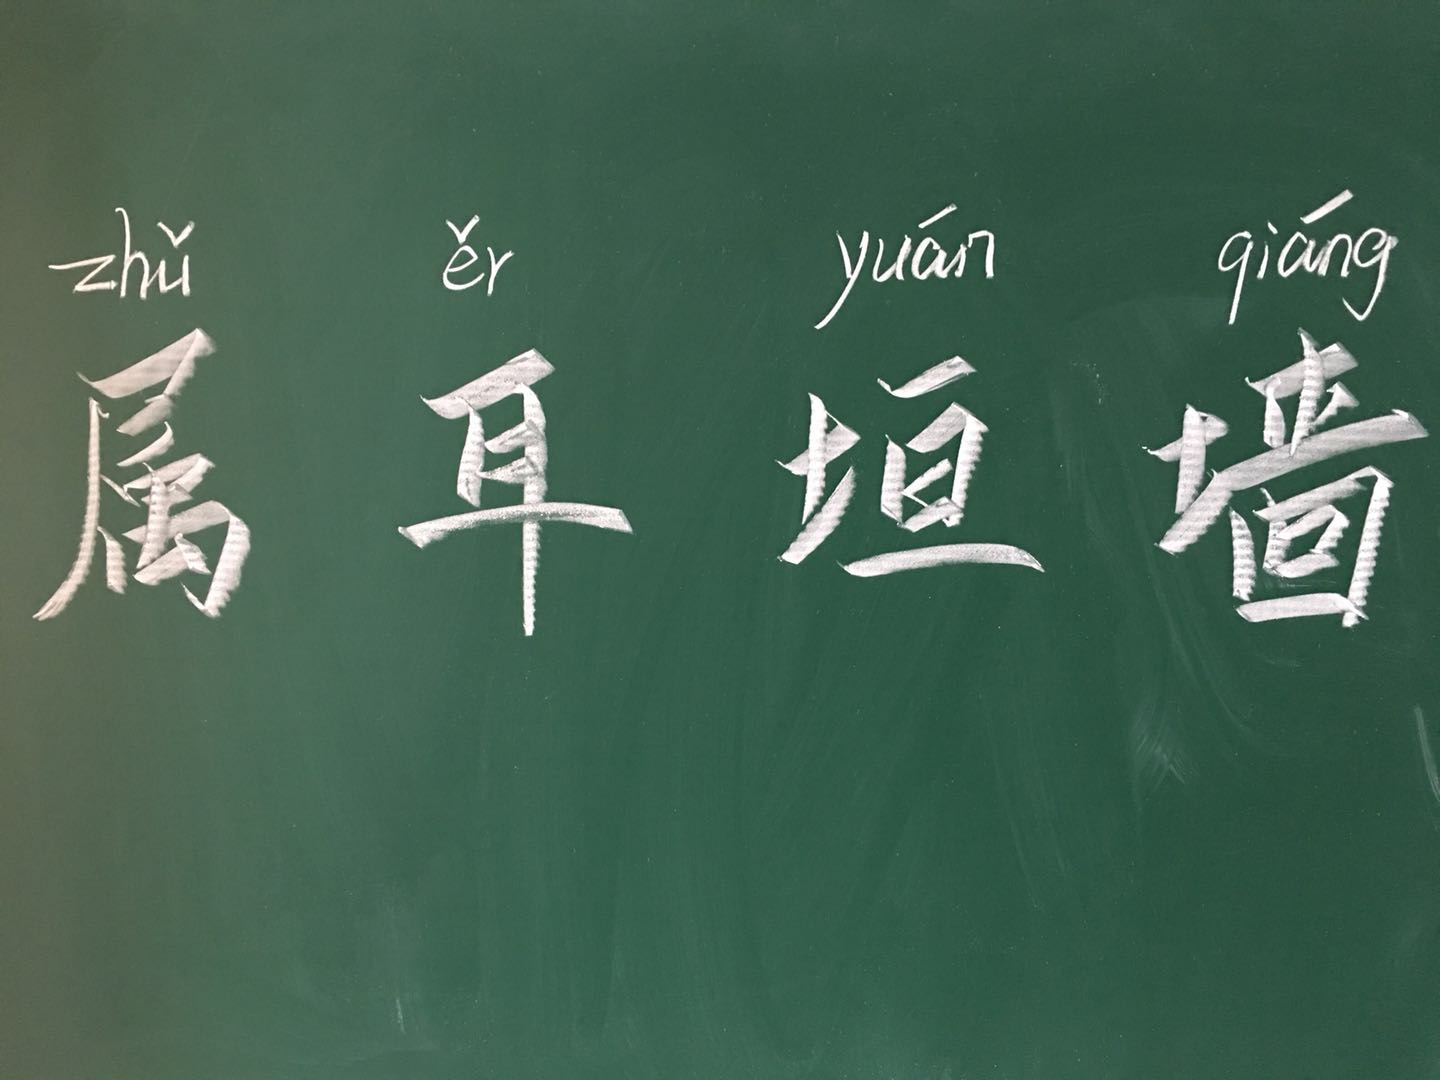 zhǔ ěr yuán qiáng
属耳垣墙